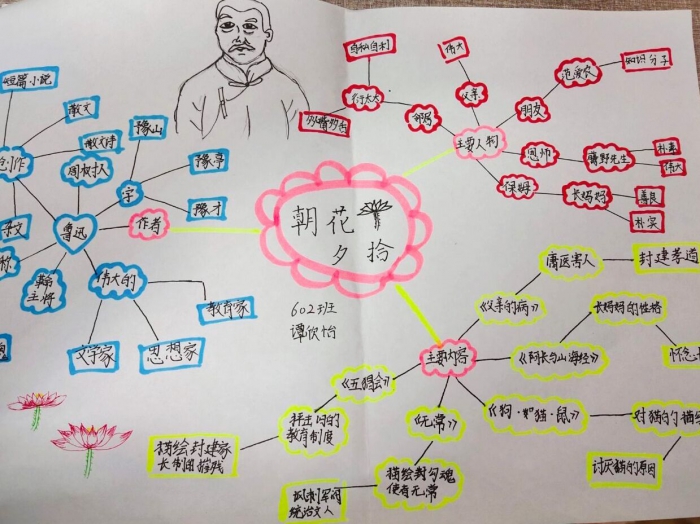 短篇小说
散文
散文诗
创作
杂文
周树人
鲁迅
字
豫山
豫亭
豫才
作者
伟大的
教育家
思想家
文学家
主将
朝花
夕拾
602班
谭欣怡
主要人物
自私自利
衍太太
邻妈
伟大
父亲
朋友
范爱农
知识分子
恩师
藤野先生
朴素
伟大
保姆
长妈妈
善良
朴实
主要内容
《父亲的病》
庸医害人
封建孝道
《阿长与山海经》
长妈妈的性格
《狗·猫·鼠》
对猫的
讨厌猫的原因
《无常》
描绘封勾魂
使者无常
讽刺军阀
统治文人
《五猖会》
抨击旧的
教育制度
描绘封建家
长制